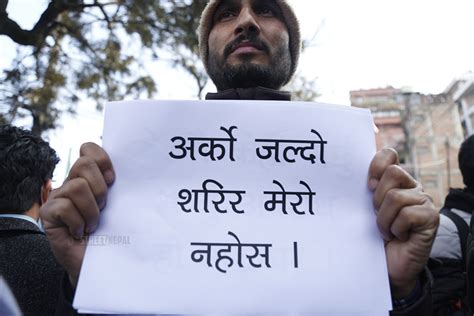 अर्को जल्दो
शरिर मेरो
नहोस ।